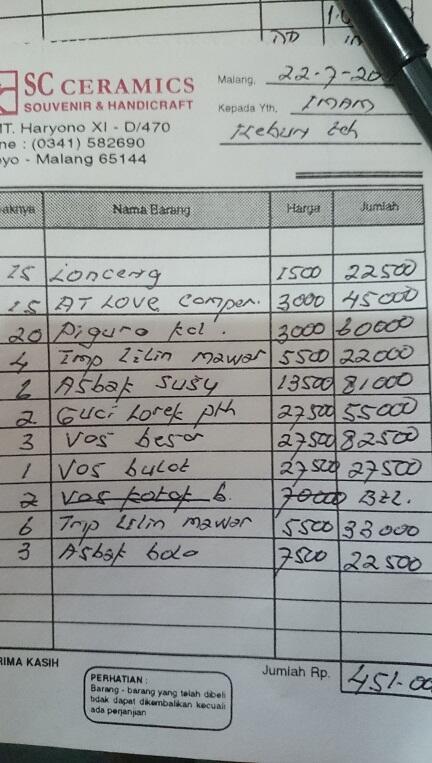 SC CERAMICS
SOUVENIR & HANDICRAFT
MT. Haryono XI - D/470
ne : (0341) 582690
oyo - Malang 65144
Malang, 22-7-20
Kepada Yth, IMAM
Kebun
aknya Nama Barang Harga Jumlah
15 Lonceng 1500 22500
15 AT LOVE Comper. 3000 45000
20 Piguro kcl. 3000 60000
4 Tmp Lilin mawar 5500 22000
6 Asbak susy 13500 81000
2 Guci Lorek pth 27500 55000
3 Vos besar 27500 82500
1 Vos bulat 27500 27500
2 Vas kotak b. 70000 Btl.
6 Tmp Lilin mawar 5500 33000
3 Asbak bolo 7500 22500
RIMA KASIH
Jumlah Rp. 451.00
PERHATIAN :
Barang - barang yang telah dibeli
tidak dapat dikembalikan kecuali
ada perjanjian